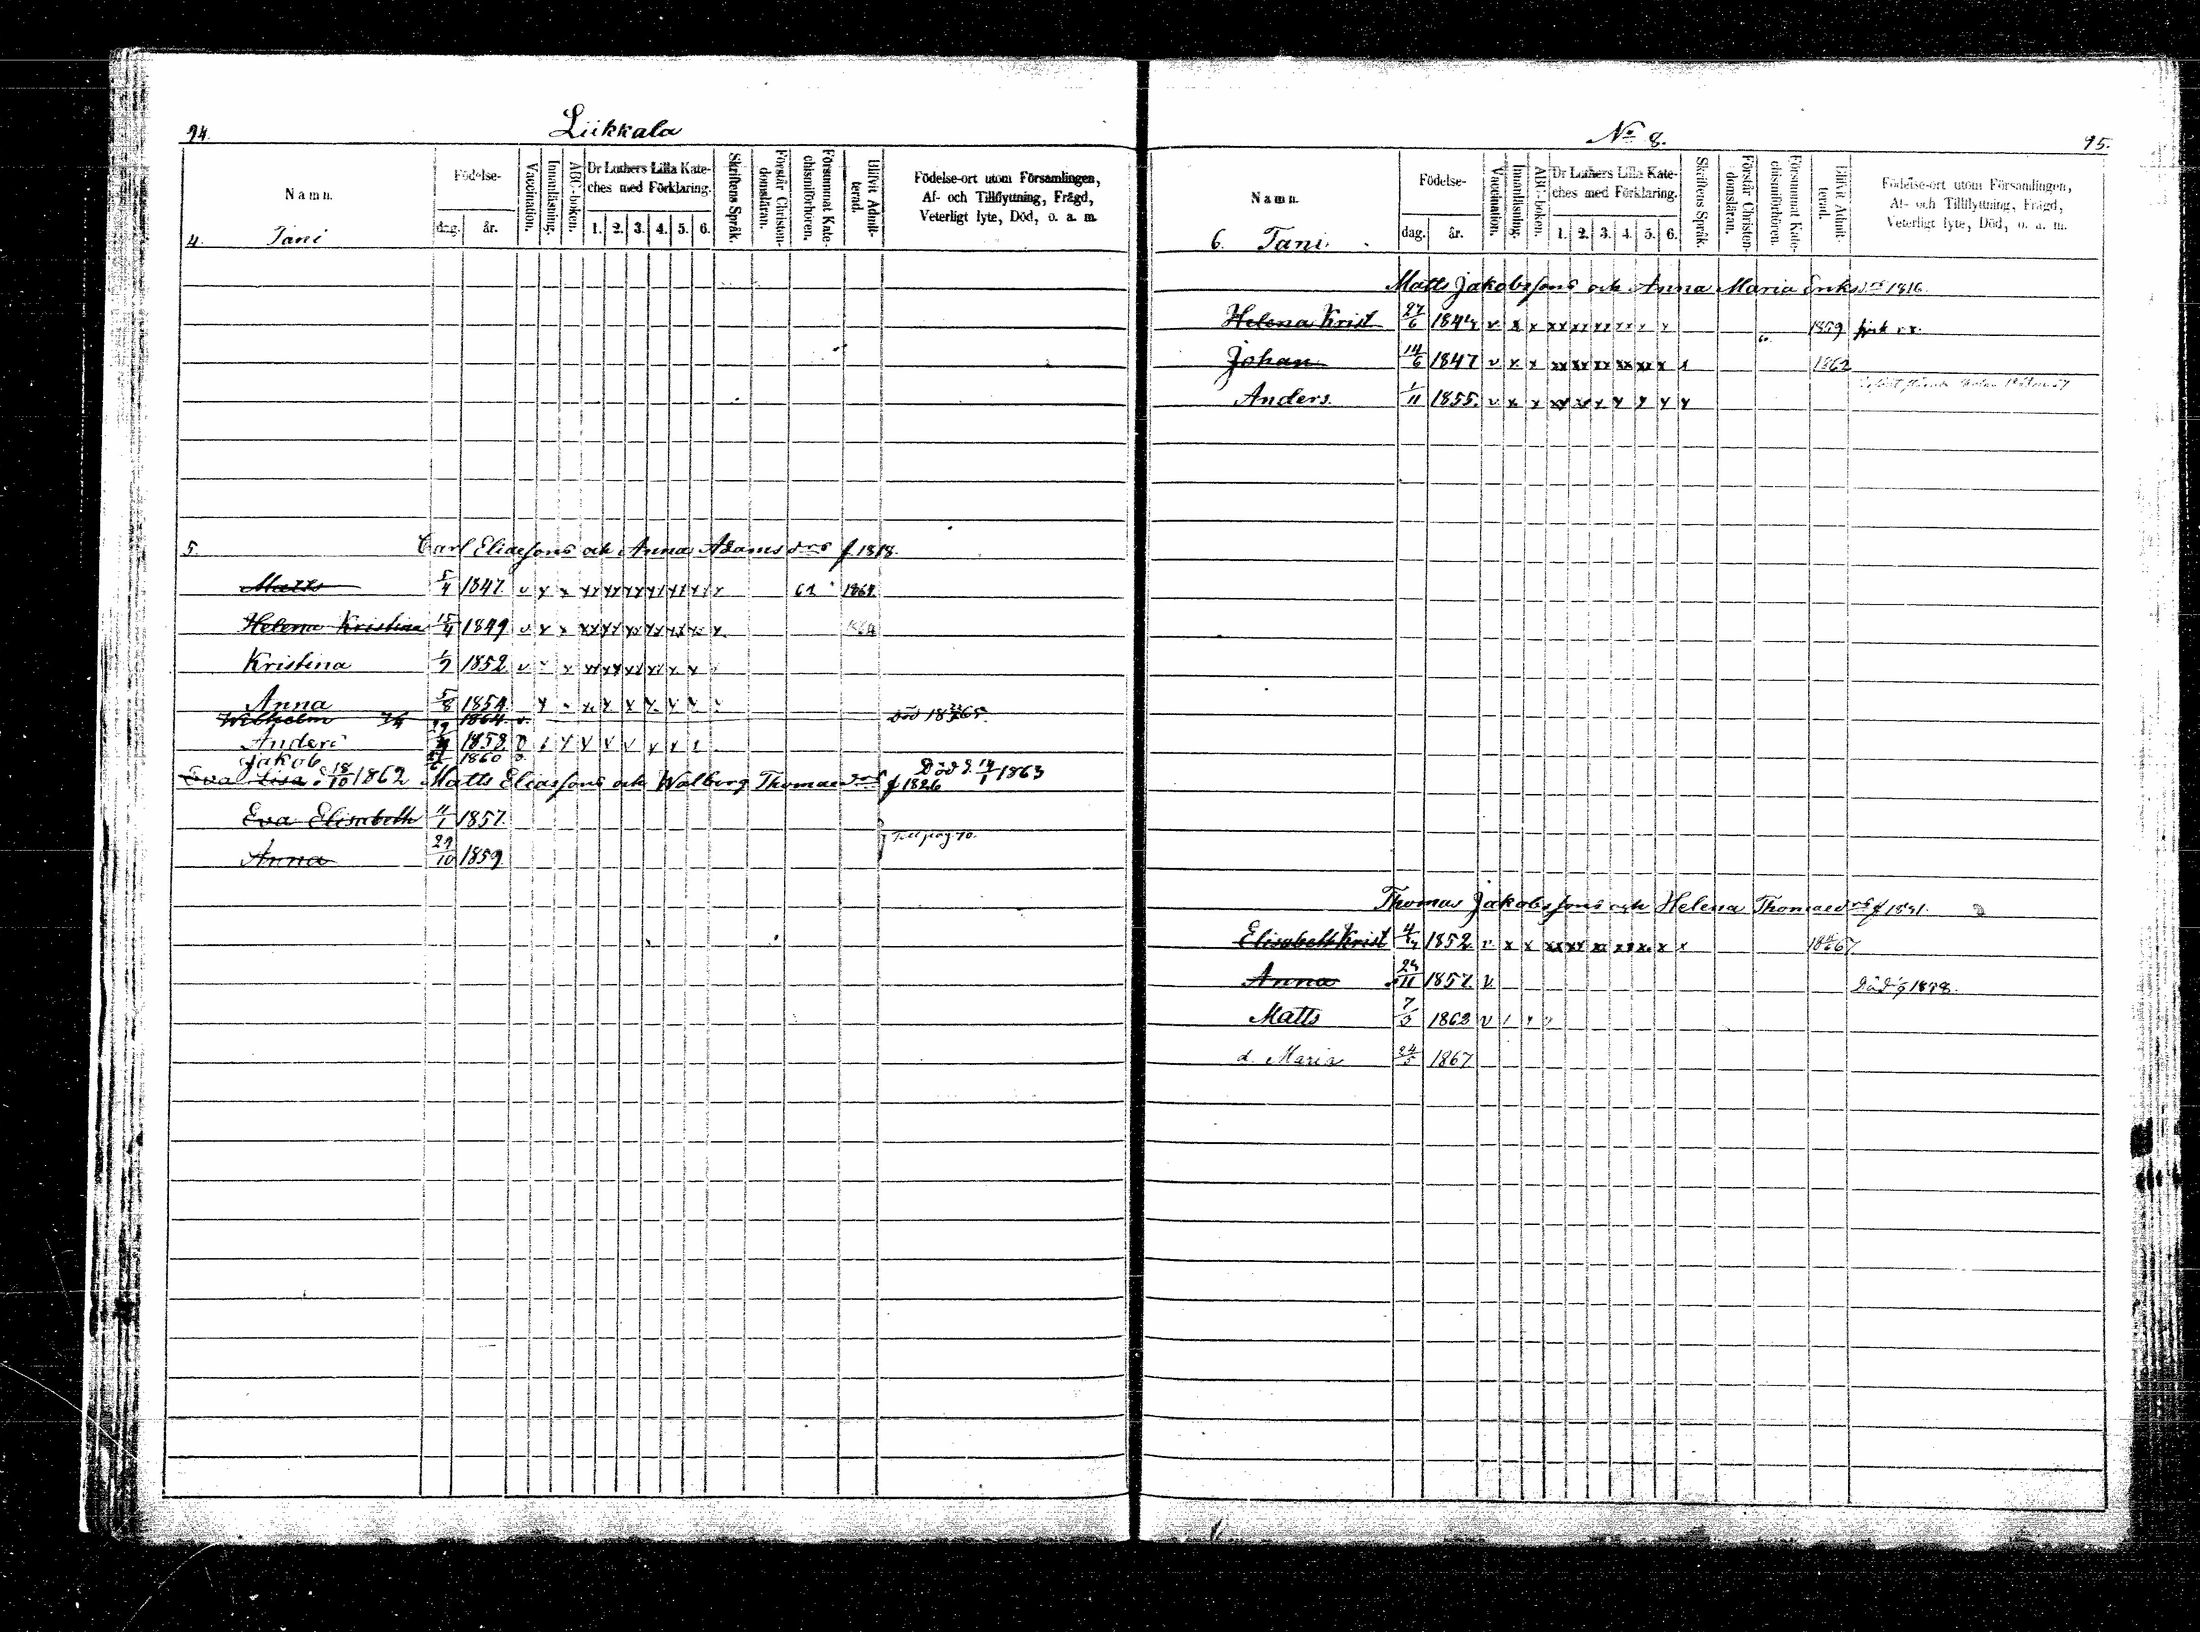 94. Liikkala
Namn. Födelse- dag. år. Vaccination. Innanläsning. ABC-boken. Dr Luthers Lilla Kateches med Förklaring. 1. 2. 3. 4. 5. 6. Skriftens Språk. Förstår Christendomsläran. Försummat Katechismiförhören. Blifvit Admitterad. Födelse-ort utom Församlingen, Af- och Tillflyttning, Frägd, Veterligt lyte, Död, o. a. m.
4. Tani
5. Carl Eliassons och Anna Adamsdrs f 1818.
Matts 5/4 1847. v x x xx xx xx xx xx xx x 62 1862
Helena Kristina 15/4 1849 v x x xx xx xx xx xx x x 1864
Kristina 1/7 1852 v x x xx xx xx xx x x
Anna 5/8 1854 x x x x x x x x
Wilhelm 1864 v. Död 1865
Anders 1858
Jakob 1860 v.
Eva Lisa d 18/10 1862 Matts Eliassons och Walborg Thomasdrs f 1826 Död d. 14/1 1863
Eva Elisabeth 11/1 1857.
Anna 29/10 1859 Till pag 70.
No 8. 95.
Namn. Födelse- dag. år. Vaccination. Innanläsning. ABC-boken. Dr Luthers Lilla Kateches med Förklaring. 1. 2. 3. 4. 5. 6. Skriftens Språk. Förstår Christendomsläran. Försummat Katechismiförhören. Blifvit Admitterad. Födelse-ort utom Församlingen, Af- och Tillflyttning, Frägd, Veterligt lyte, Död, o. a. m.
6. Tani
Matts Jakobssons och Anna Maria Eriksdrs 1816.
Helena Krist 27/6 1844 v x x xx xx xx xx x x 60. 1859
Johan 14/6 1847 v x x xx xx xx xx xx x x 1862
Anders. 1/11 1855. v x x xx xx x x x x x
Thomas Jakobssons och Helena Thomasdrs f 1821.
Elisabeth Krist 1852. v x x xx xx xx xx xx x x 1867
Anna 1857. v Död 1878.
Matts 7/5 1863 v
d. Maria 24/5 1867